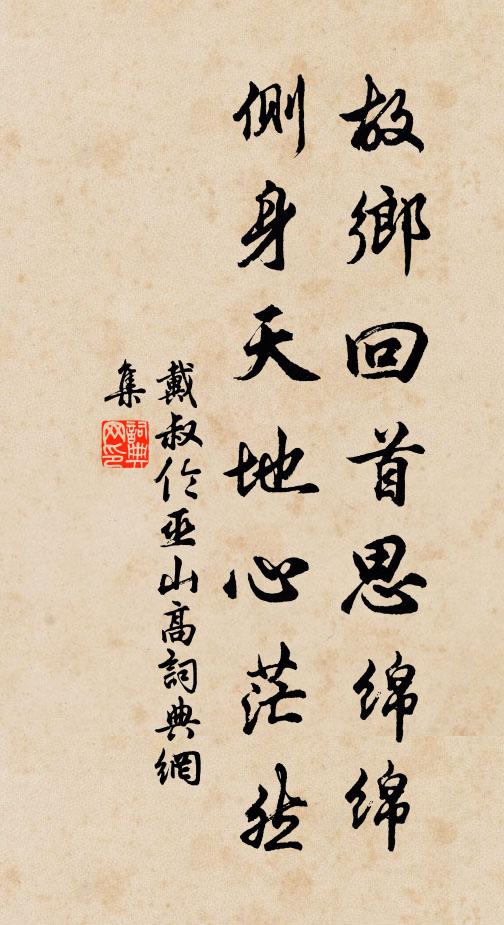 故鄉回首思綿綿
側身天地心茫然
戴叔伦巫山高詞典網
集
詞典
网印